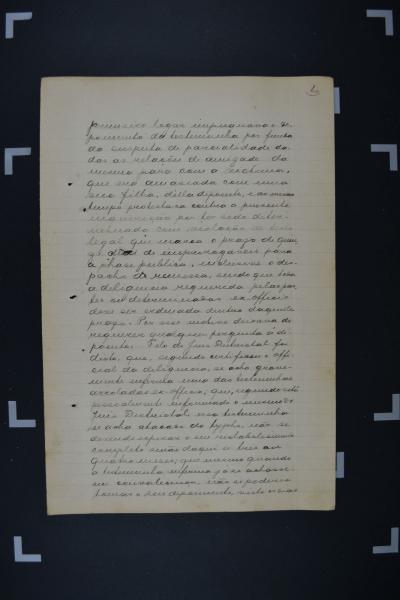 primeiro logar impugnava o de-
poimento da testemunha por fundo
da suspeita de parcialidade da-
das as relações de amizade do
mesmo para com a victima,
que era amasiada com uma
sua filha, della depoente, e ao mesmo
tempo protestava contra o presente
por ter sido deter-
minado com violação de
legal que marca o prazo de
dias para
a phase publica, inclusive o des-
pacho de remessa, sendo que toda
a deligencia requerida pelas par-
tes ou determinadas ex-officio
deve ser ordenada dentro daquelle
prazo. Por esse motivo deixava de
requerer qualquer pergunta á de-
poente. Pelo dr. Juiz Districtal foi
dito, que, segundo certificou o offi-
cial da deligencia, se acha grave-
mente enferma uma das testemunhas
arroladas ex-officio; que, segundo está
pessoalmente informado o mesmo dr.
Juiz Districtal essa testemunha
se acha atacada do typho, não se
devendo esperar o seu restabelecimento
completo senão daqui a tres ou
quatro mezes; que mesmo quando
a testemunha enferma já se achasse
em convalescença, não se poderia
tomar o seu depoimento